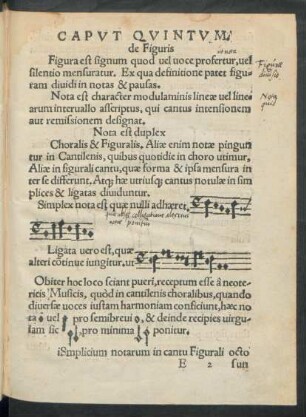 CAPVT QVINTVM,
de Figuris
Figura est signum quod uel uoce profertur, uel
silentio mensuratur. Ex qua definitione patet figu-
ram diuidi in notas & pausas.
Nota est character modulaminis lineæ uel line
arum interuallo asscriptus, qui cantus intensionem
aut remissionem designat.
Nota est duplex
Choralis & Figuralis, Aliæ enim notæ pingun
tur in Cantilenis, quibus quotidie in choro utimur,
Aliæ in figurali cantu, quæ forma & ipsa mensura in
ter se differunt, Atq; hæ utriusq; cantus notulæ in sim
plices & ligatas diuiduntur.
Simplex nota est quæ nulli adhæret,
Ligata uero est, quæ
alteri cōtinuè iungitur, ut
Obiter hoc loco sciant pueri, receptum esse à neote-
ricis Musicis, quòd in cantilenis choralibus, quando
diuersæ uoces iustam harmoniam conficiunt, hæc no
ta uel pro semibreui, & deinde recipies uirgu-
lam sic pro minima ponitur.
Simplicium notarum in cantu Figurali octo
E 2 sun